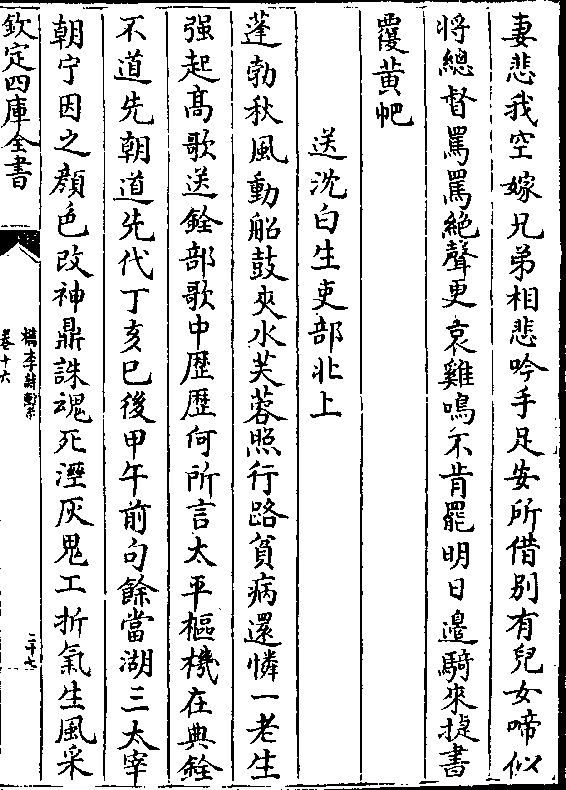 妻悲我空嫁兄弟相悲吟手足安所借别有兒女啼似
將總督罵罵絶聲更哀雞鳴不肯罷明日邉騎來捉書
覆黄帊
送沈白生吏部北上
蓬勃秋風動船鼓夾水芙蓉照行路貧病還憐一老生
强起髙歌送銓部歌中歴歴何所言太平樞機在典銓
不道先朝道先代丁亥已後甲午前句餘當湖三太宰
朝宁因之顔色改神鼎誅魂死溼灰鬼工折氣生風采
欽定四庫全書
檇李詩繫
卷十六
二十七